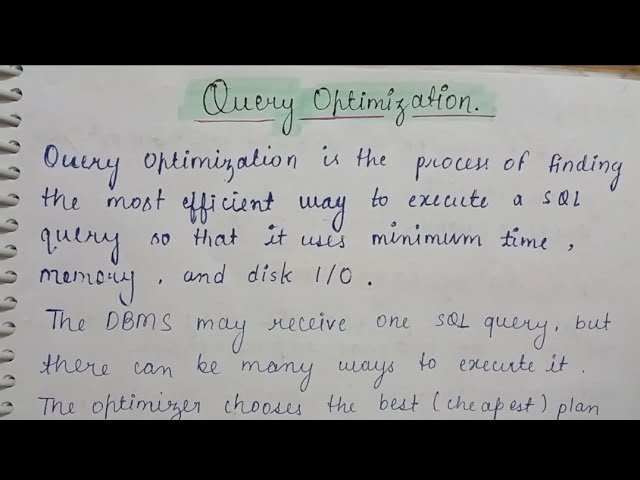 Query Optimization.
Query optimization is the process of finding
the most efficient way to execute a SQL
query so that it uses minimum time,
memory, and disk I/O.
The DBMS may receive one SQL query, but
there can be many ways to execute it.
The optimizer chooses the best (cheapest) plan